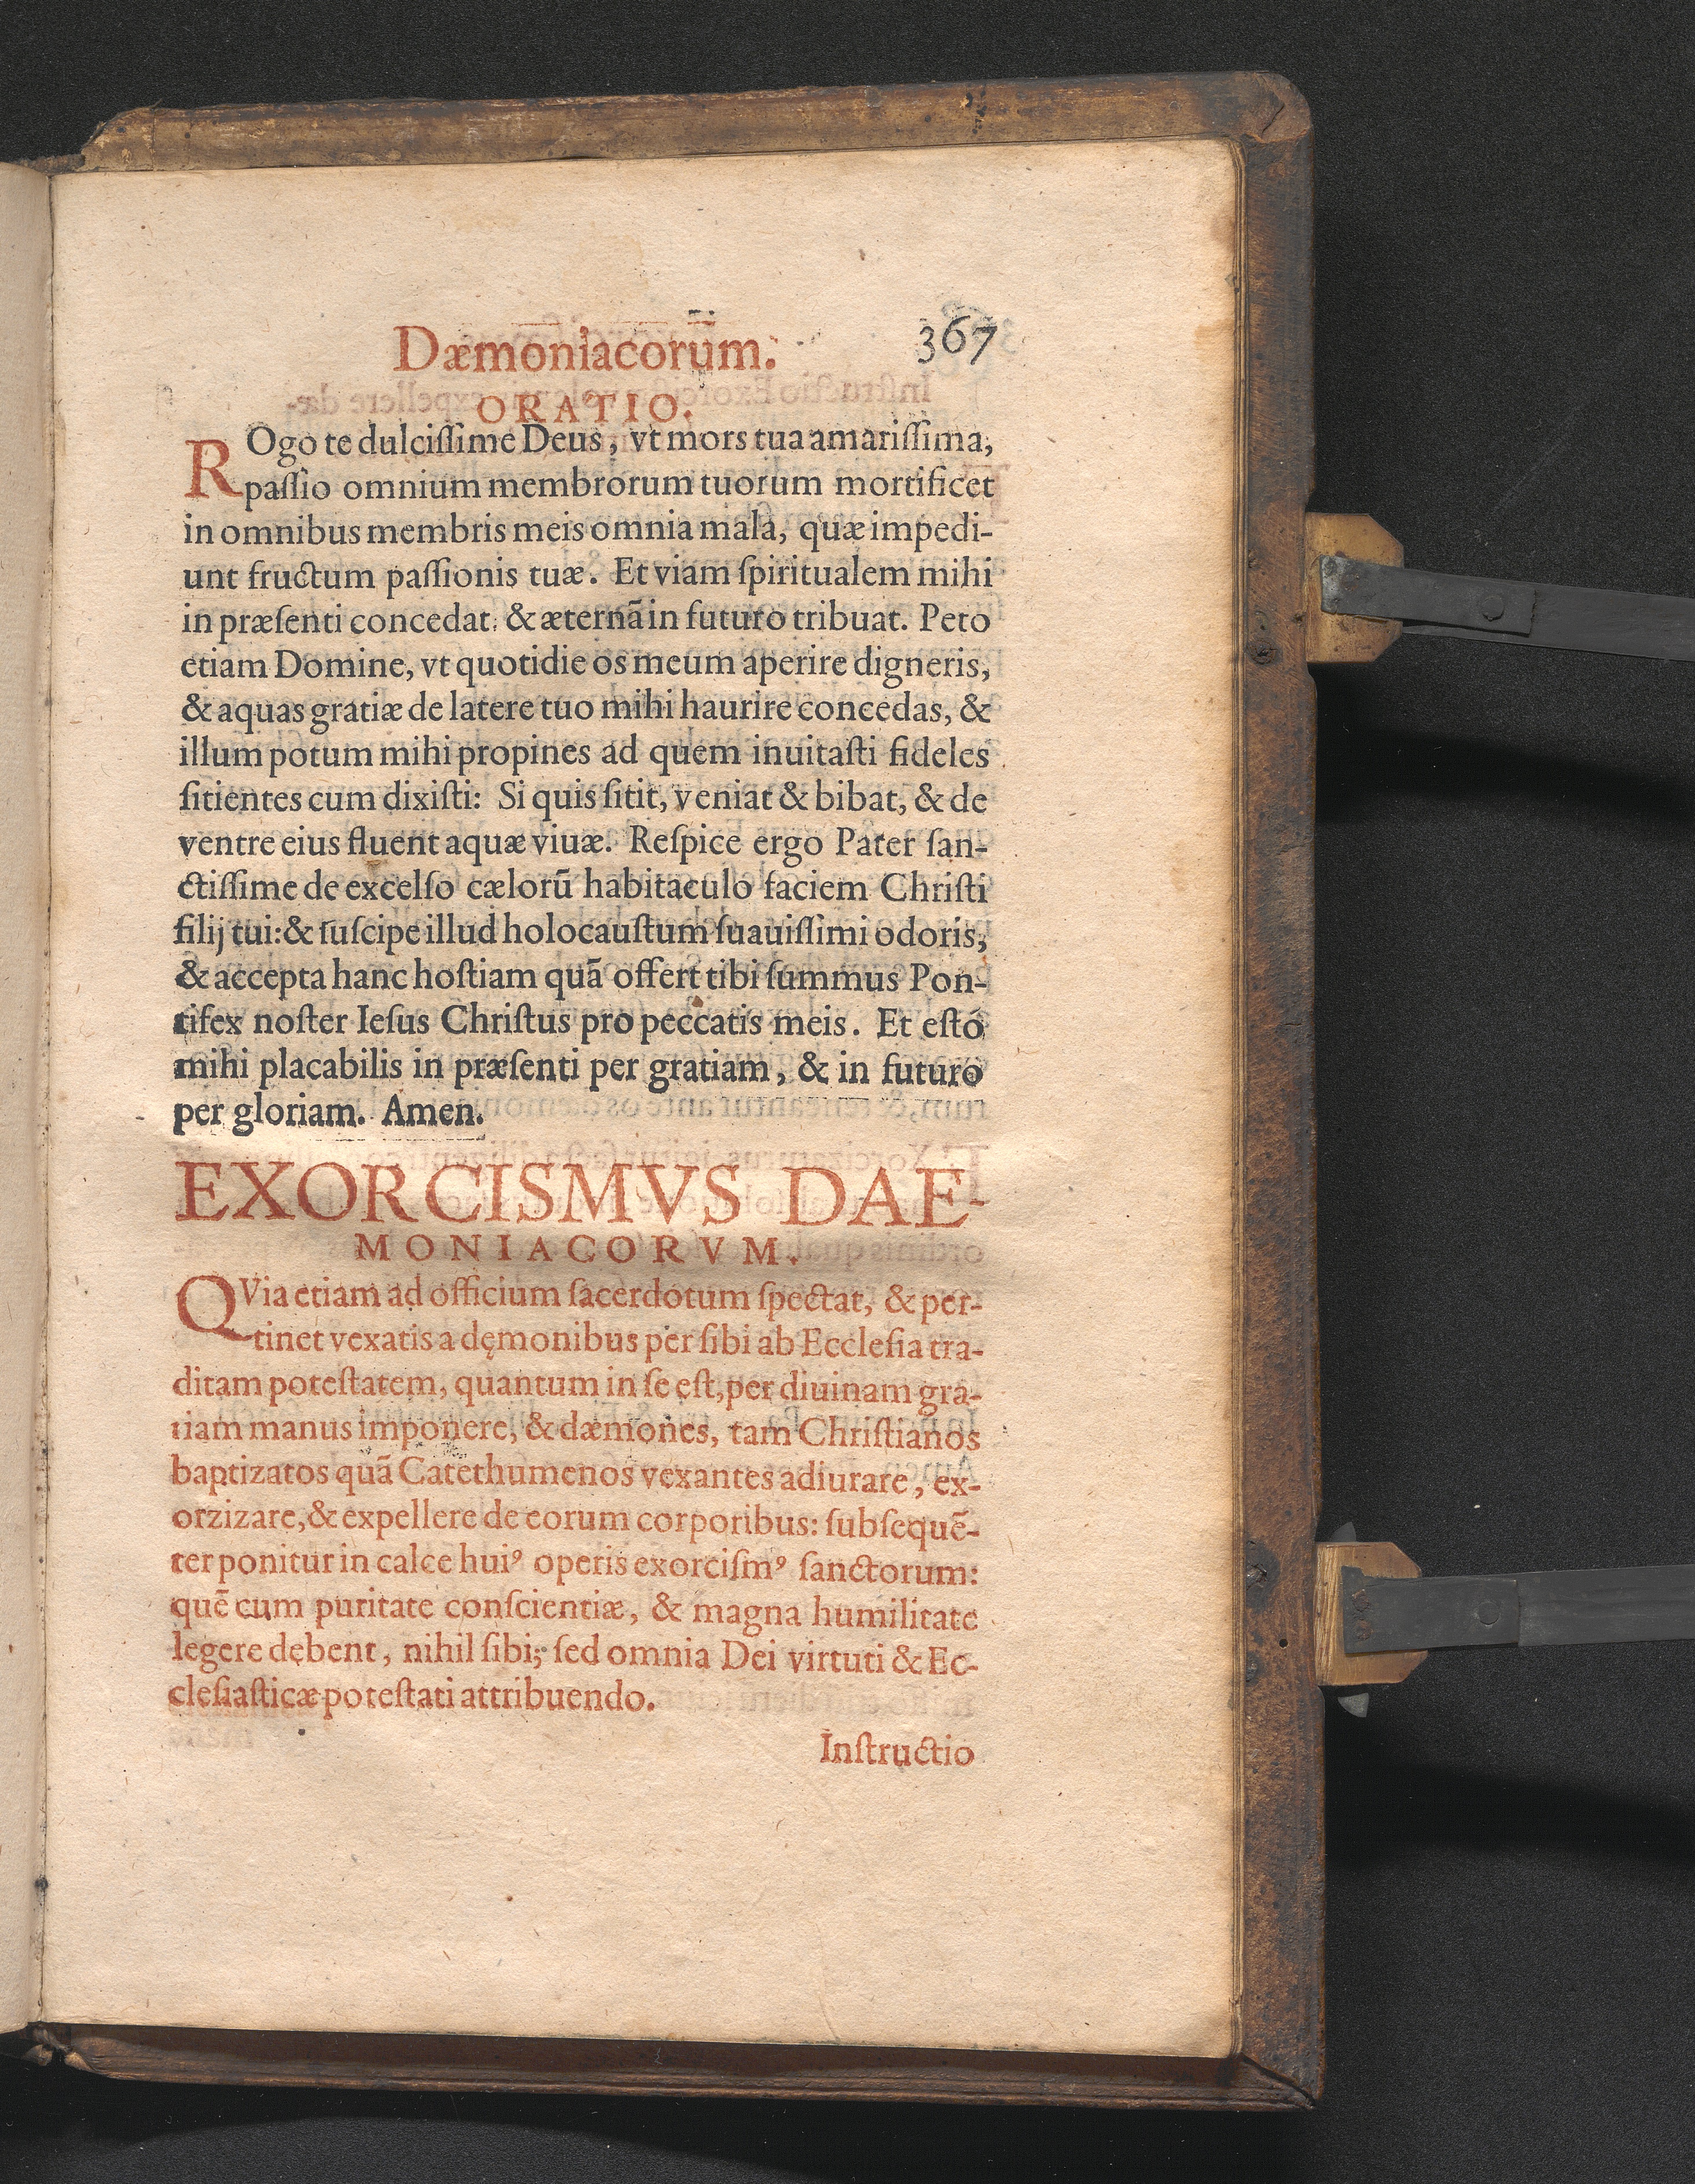 Dæmoniacorum.
367
ORATIO.
ROgo te dulciſſime Deus, vt mors tua amariſſima,
paſſio omnium membrorum tuorum mortificet
in omnibus membris meis omnia mala, quæ impedi-
unt fructum paſſionis tuæ. Et viam ſpiritualem mihi
in præſenti concedat: & æternã in futuro tribuat. Peto
etiam Domine, vt quotidie os meum aperire digneris,
& aquas gratiæ de latere tuo mihi haurire concedas, &
illum potum mihi propines ad quem inuitaſti fideles
ſitientes cum dixiſti: Si quis ſitit, veniat & bibat, & de
ventre eius fluent aquæ viuæ. Reſpice ergo Pater ſan-
ctiſſime de excelſo cælorũ habitaculo faciem Chriſti
filij tui: & ſuſcipe illud holocauſtum ſuauiſſimi odoris,
& accepta hanc hoſtiam quã offert tibi ſummus Pon-
tifex noſter Ieſus Chriſtus pro peccatis meis. Et eſto
mihi placabilis in præſenti per gratiam, & in futuro
per gloriam. Amen.
EXORCISMVS DAE-
MONIACORVM.
QVia etiam ad officium ſacerdotum ſpectat, & per-
tinet vexatis a dęmonibus per ſibi ab Eccleſia tra-
ditam poteſtatem, quantum in ſe eſt, per diuinam gra-
tiam manus imponere, & dæmones, tam Chriſtianos
baptizatos quã Catethumenos vexantes adiurare, ex-
orzizare, & expellere de eorum corporibus: ſubſequẽ-
ter ponitur in calce huiꝰ operis exorciſmꝰ ſanctorum:
quẽ cum puritate conſcientiæ, & magna humilitate
legere debent, nihil ſibi; ſed omnia Dei virtuti & Ec-
cleſiaſticæ poteſtati attribuendo.
Inſtructio